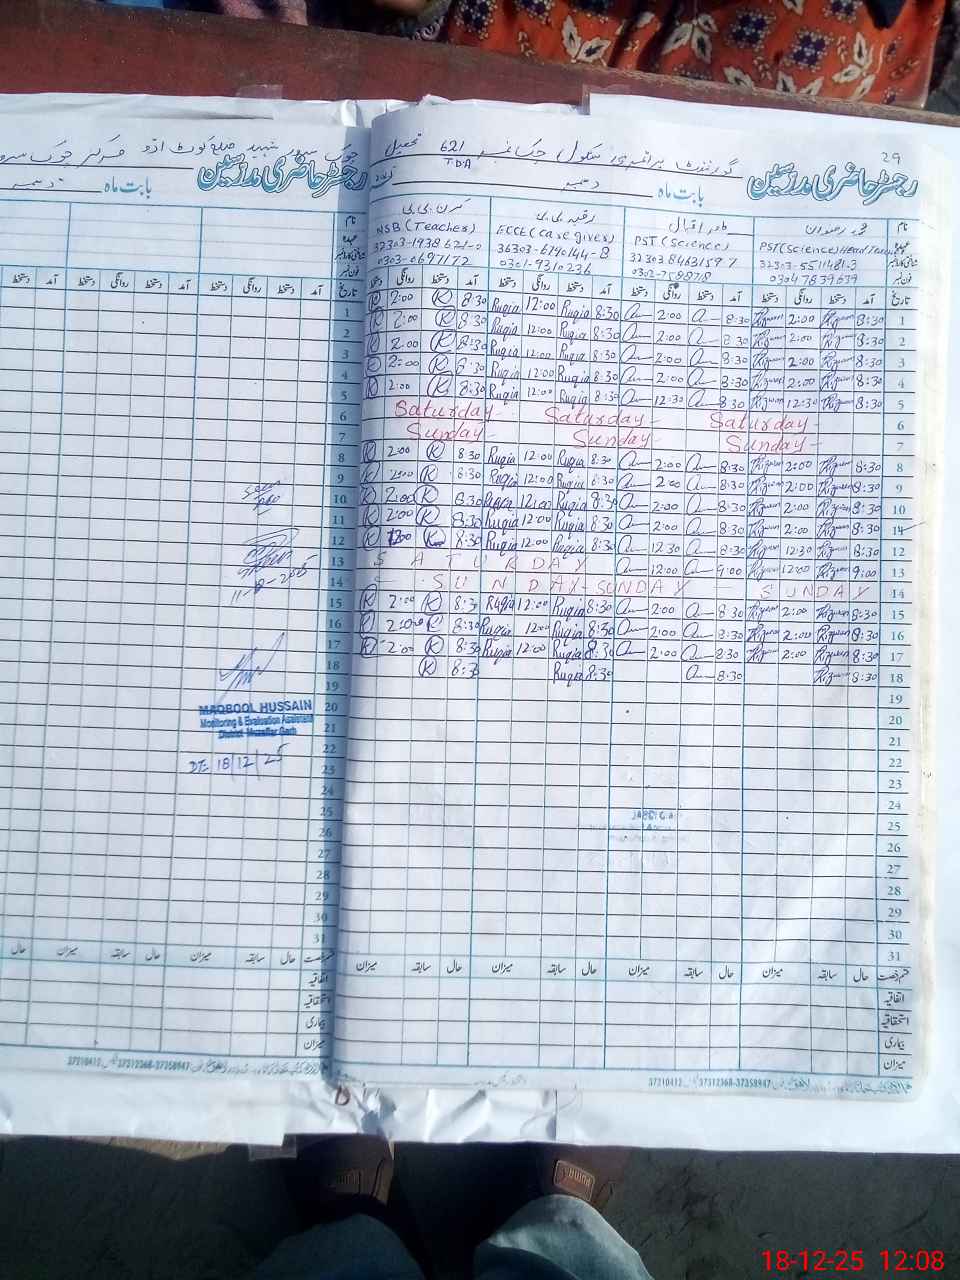 29
گورنمنٹ پرائمری سکول چک نمبر 621 تحصیل
T.D.A
چوک سرور شہید ضلع کوٹ ادو مرکز چوک سرور
رجسٹر حاضری مدرسین
بابت ماہ دسمبر
رجسٹر حاضری مدرسین
بابت ماہ دسمبر
نام
محمد رضوان
ظفر اقبال
رقیہ بی بی
کرن بی بی
عہدہ PST(Science)Head Teacher PST(Science) ECCE(Care giver) NSB(Teacher)
32303-5511481-3 36303-6790144-8 32303-1938621-0
03047839639 0301-9310236 0303-0697172
تاریخ آمد دستخط روانگی دستخط آمد دستخط روانگی دستخط آمد دستخط روانگی دستخط آمد دستخط روانگی دستخط
1 8:30 Rizwan 2:00 Rizwan 8:30 2:00 8:30 Ruqia 12:00 Ruqia 8:30 K 2:00 K
2 8:30 Rizwan 2:00 Rizwan 8:30 2:00 8:30 Ruqia 12:00 Ruqia 8:30 K 2:00 K
3 8:30 Rizwan 2:00 Rizwan 8:30 2:00 8:30 Ruqia 12:00 Ruqia 8:30 K 2:00 K
4 8:30 Rizwan 2:00 Rizwan 8:30 2:00 8:30 Ruqia 12:00 Ruqia 8:30 K 2:00 K
5 8:30 Rizwan 12:30 Rizwan 8:30 12:30 8:30 Ruqia 12:00 Ruqia 8:30 K 2:00 K
6 Saturday- Saturday- Saturday-
7 Sunday- Sunday- Sunday-
8 8:30 Rizwan 2:00 Rizwan 8:30 2:00 8:30 Ruqia 12:00 Ruqia 8:30 K 2:00 K
9 8:30 Rizwan 2:00 Rizwan 8:30 2:00 8:30 Ruqia 12:00 Ruqia 8:30 K 2:00 K
10 8:30 Rizwan 2:00 Rizwan 8:30 2:00 8:30 Ruqia 12:00 Ruqia 8:30 K 2:00 K
11 8:30 Rizwan 2:00 Rizwan 8:30 2:00 8:30 Ruqia 12:00 Ruqia 8:30 K 2:00 K
12 8:30 Rizwan 12:30 Rizwan 8:30 12:30 8:30 Ruqia 12:00 Ruqia 8:30 K K
13 9:00 Rizwan 12:00 Rizwan 9:00 12:00 SATURDAY
14 SUNDAY-SUNDAY - SUNDAY
15 8:30 Rizwan 2:00 Rizwan 8:30 2:00 8:30 Ruqia 12:00 Ruqia 8:30 K 2:00 K
16 8:30 Rizwan 2:00 Rizwan 8:30 2:00 8:30 Ruqia 12:00 Ruqia 8:30 K 2:00 K
17 8:30 Rizwan 2:00 Rizwan 8:30 2:00 8:30 Ruqia 12:00 Ruqia 8:30 K 2:00 K
18 8:30 Rizwan 8:30 8:30 Ruqia 8:30 K
19
20
21
22
23
24
25
26
27
28
29
30
31
حال سابقہ میزان حال سابقہ میزان حال سابقہ میزان حال سابقہ میزان
اتفاقیہ
استحقاقیہ
بیماری
میزان
37210412 37312368-37358947
11-12-2025
MAQBOOL HUSSAIN
Monitoring & Evaluation Assistant
District Muzaffar Garh
DT: 18/12/25
37210412 37312368-37358947
PUMA
18-12-25 12:08